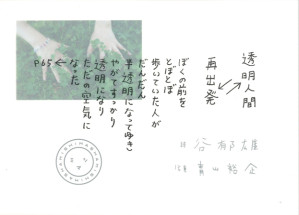 透明人間
再出発
ぼくの前を
とぼとぼ
歩いていた人が
だんだん
半透明になってゆき
やがてすっかり
透明になり
ただの空気に
なった
P65
谷
青山